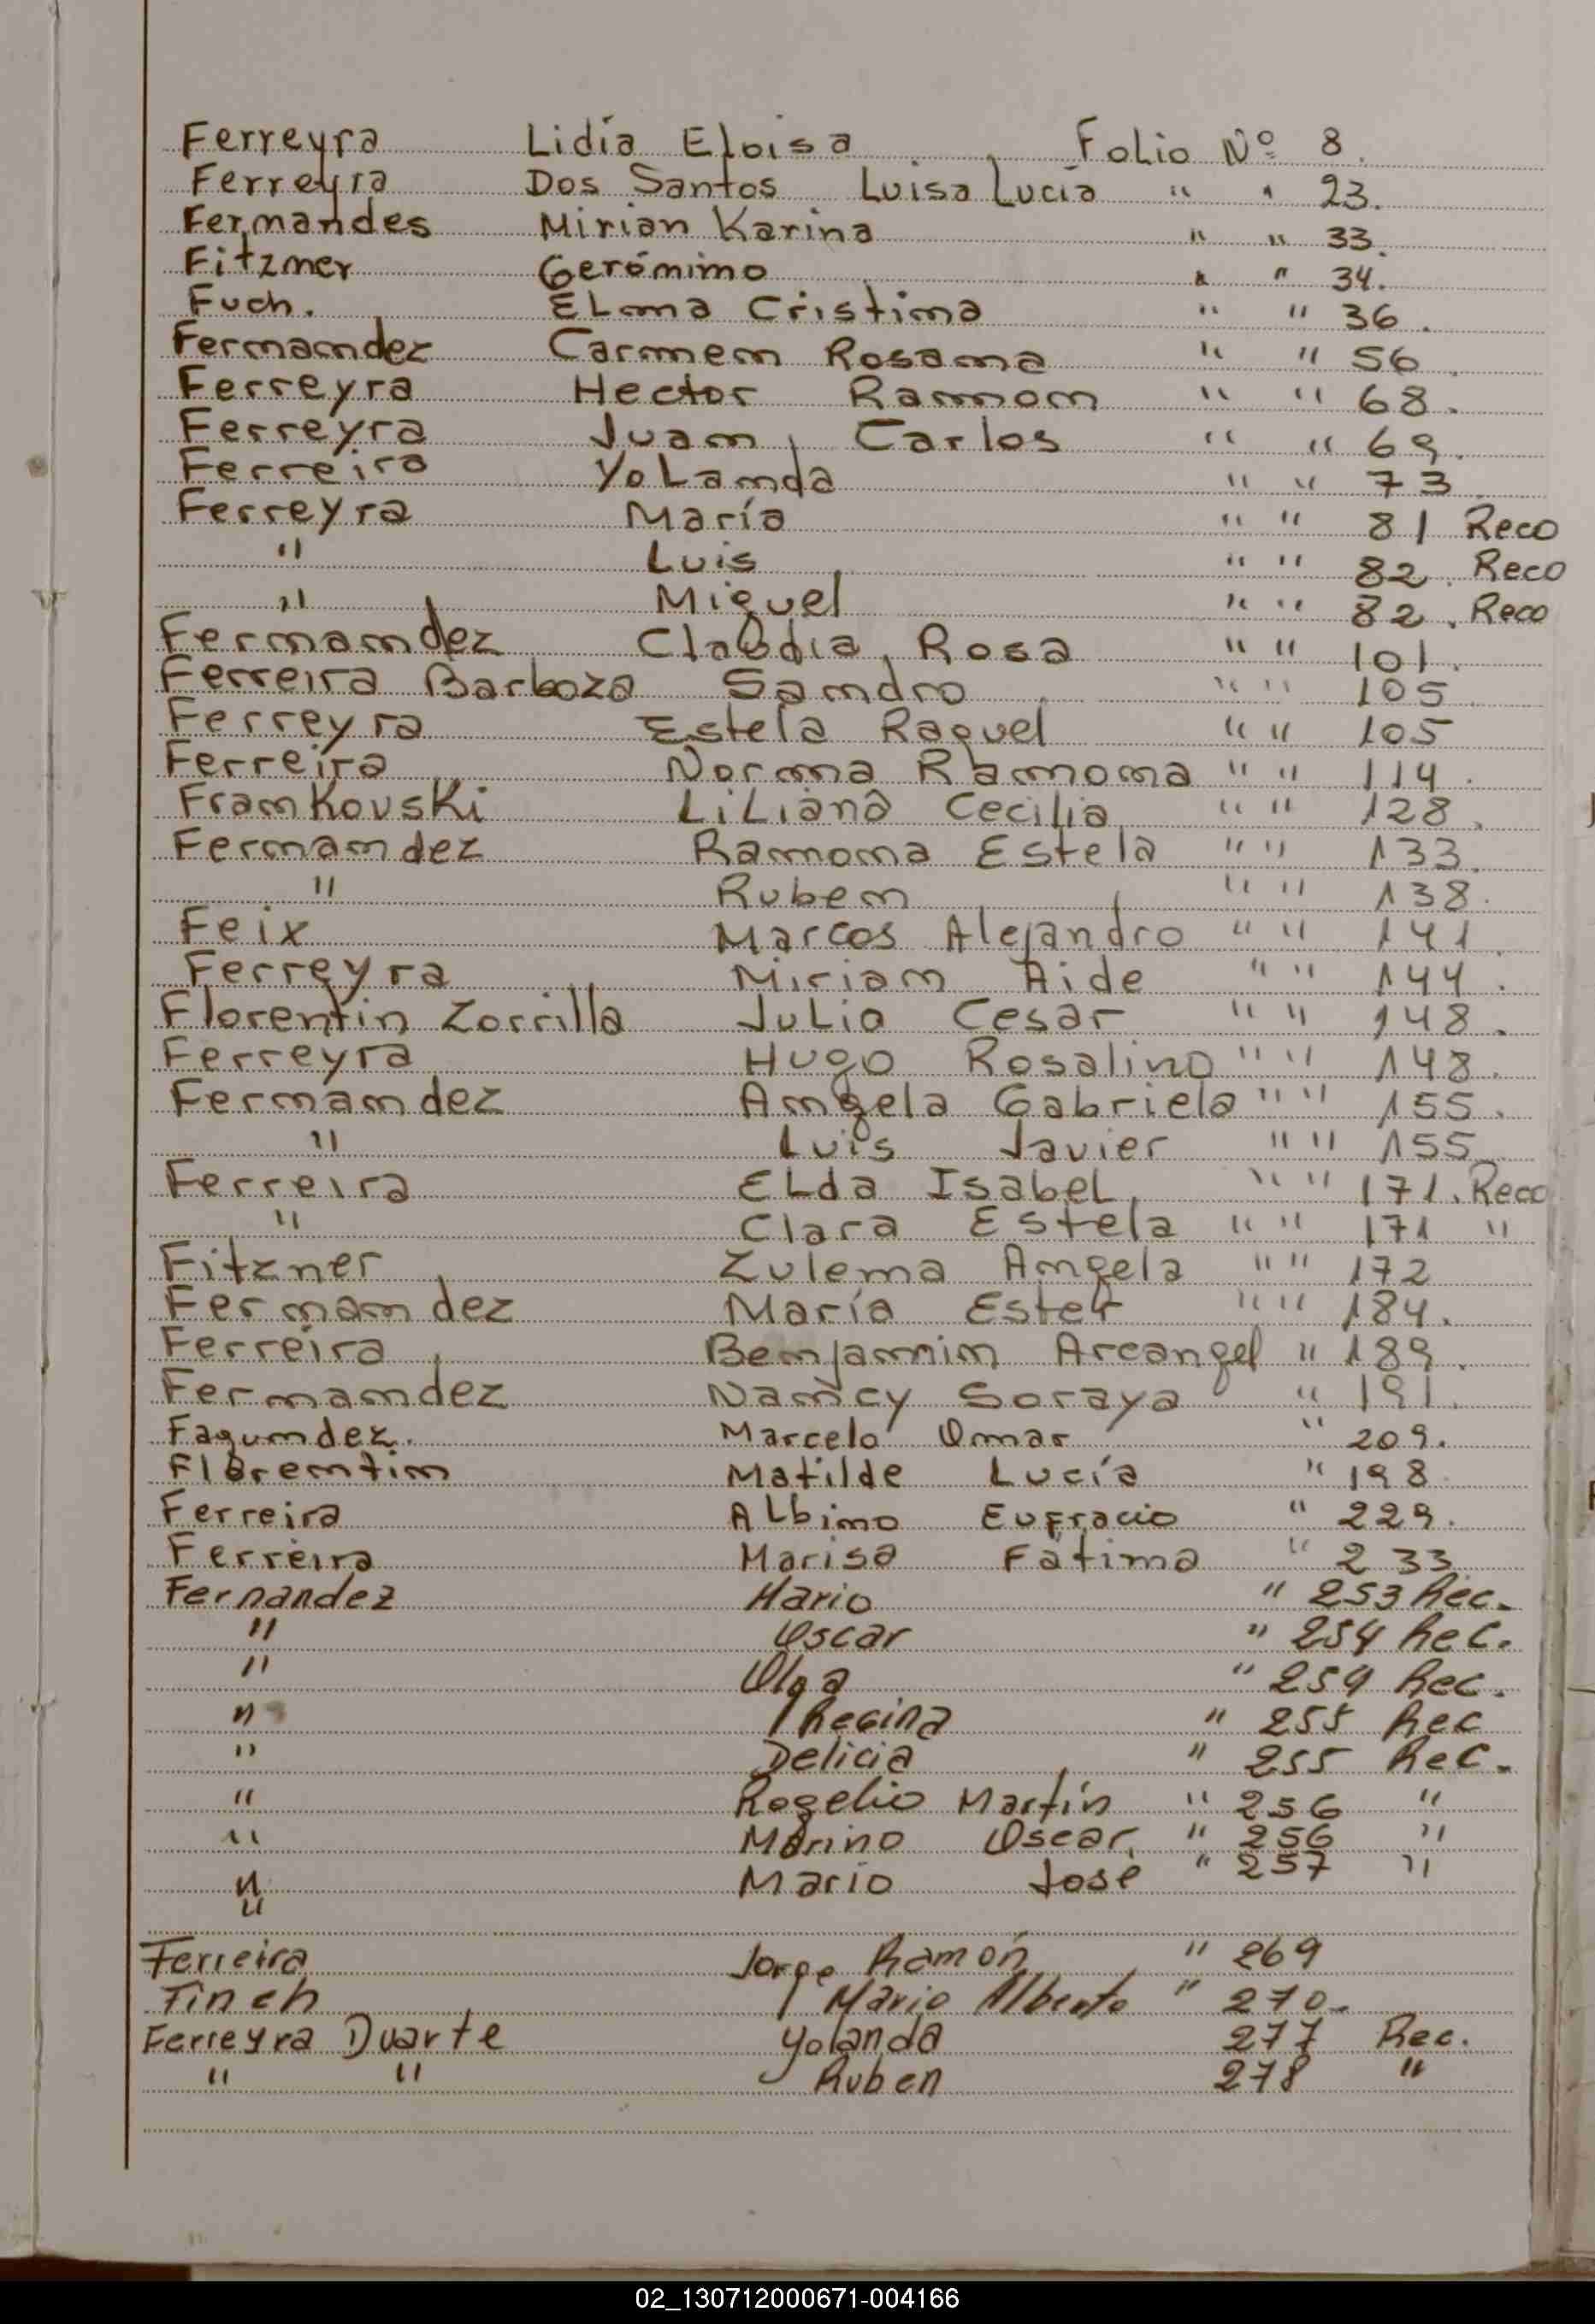 Ferreyra Lidia Eloisa Folio Nº 8.
Ferreyra Dos Santos Luisa Lucia " " 23.
Fernandes Mirian Karina " " 33.
Fitzner Gerónimo " " 34.
Fuch. Elma Cristina " " 36.
Fernandez Carmen Rosana " " 56.
Ferreyra Hector Ramon " " 68.
Ferreyra Juan Carlos " " 69.
Ferreira Yolanda " " 73
Ferreyra María " " 81 Reco
" Luis " " 82. Reco
" Miguel " " 82. Reco
Fernandez Claudia Rosa " " 101.
Ferreira Barboza Sandro " " 105
Ferreyra Estela Raquel " " 105
Ferreira Norma Ramona " " 114.
Frankouski Liliana Cecilia " " 128.
Fernandez Ramona Estela " " 133.
" Ruben " " 138.
Feix Marcos Alejandro " " 141
Ferreyra Miriam Aide " " 144.
Florentin Zorrilla Julio Cesar " " 148.
Ferreyra Hugo Rosalino " " 148.
Fernandez Angela Gabriela " " 155.
" Luis Javier " " 155
Ferreira Elda Isabel " " 171. Reco
" Clara Estela " " 171 "
Fitzner Zulema Angela " " 172
Fernandez María Ester " " 184.
Ferreira Benjamin Arcangel " 189.
Fernandez Nancy Soraya " 191.
Fagundez. Marcelo Omar " 209.
Florentin Matilde Lucía " 198
Ferreira Albino Eufracio " 229.
Ferreira Marisa Fátima " 233
Fernandez Mario " 253 Rec.
" Oscar " 254 Rec.
" Olga " 254 Rec.
" Regina " 255 Rec
" Delicia " 255 Rec.
" Rogelio Martín " 256 "
" Marino Oscar " 256 "
" Mario José " 257 "
"
Ferreira Jorge Ramón " 269
Finch Mario Alberto " 270.
Ferreyra Duarte Yolanda 277 Rec.
" " Ruben 278 "
02_130712000671-004166